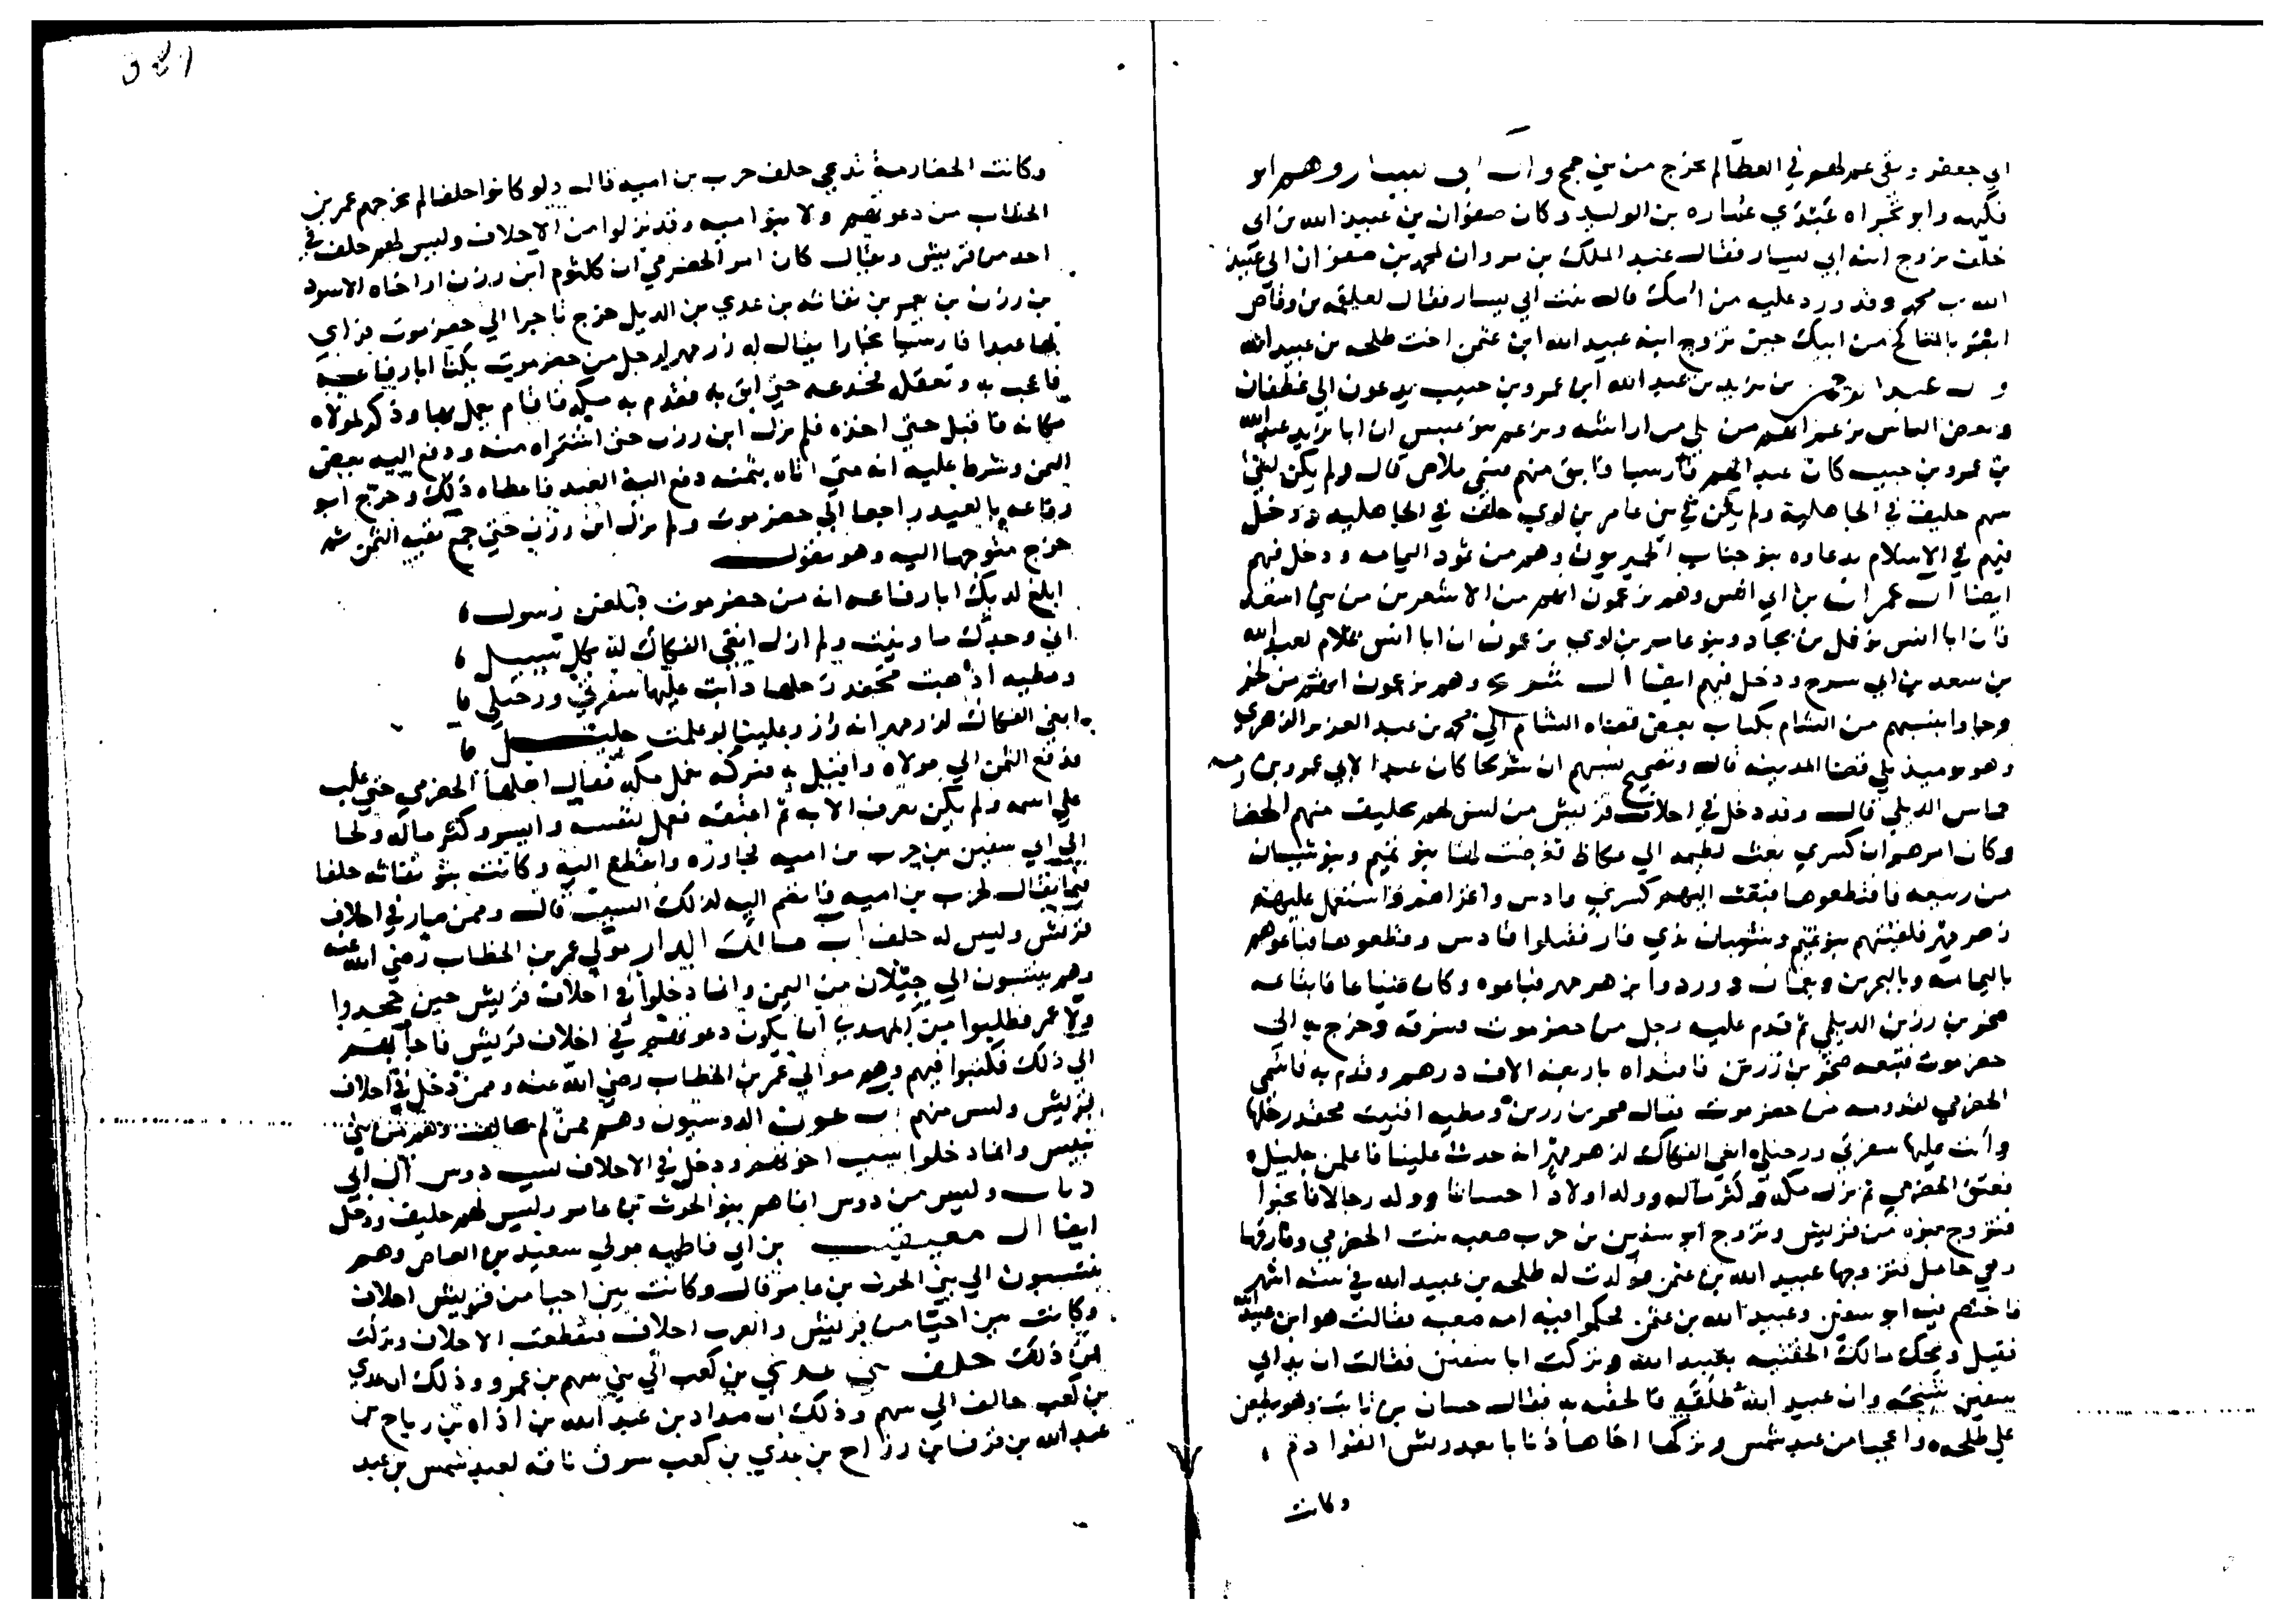 ابي جعفر وبقى عمر لهم في العطا لم يخرج من بني جمح وآل ابى يسار وهم ابو
فكيهه وابو تجراه عبدي عماره بن الوليد وكان صفوان بن عبيد الله بن ابى
خلف تزوج ابنه ابي يسار فقال عبد الملك بن مروان لمحمد بن صفوان الى عبيد
الله بن محمد وقد ورد عليه من امك قال بنت ابي يسار فقال لعلقمه بن وقاص
المناكح من ابيك حين تزوج ابنه عبيد الله ابن عثمن اخت طلحه بن عبيد الله
بن يزيد بن عبد الله ابن عمرو بن حبيب يدعون الى غطفان
وبعض الناس يزعم انهم من بلي من اراشه ويزعم بنو عبس ان ابا يزيد عبد الله
بن عمرو بن حبيب كان عبدا لهم فارسيا فابق منهم قال ولم يكن لبني
سهم حليف في الجاهلية ولم يكن في بني عامر بن لوي حلف في الجاهليه ودخل
فيهم في الاسلام بدعاوه بنو جناب الحميريون وهم من اليمامه ودخل فيهم
ايضا آل عمران بن ابي انس وهم يزعمون انهم من الاشعرين من بني اسعد
فان ابا انس نوفل من بجاد وبنو عامر بن لوي يزعمون ان ابا انس غلام لعبد الله
بن سعد بن ابي سرح ودخل فيهم ايضا آل شريح وهم يزعمون انهم من لخم
وجاوا بنسبهم من الشام بكتاب بعض قضاه الشام الى محمد بن عبد العزيز الزهري
وهو يوميذ يلي قضا المدينه قال وتصحيح نسبهم ان شريحا كان عبدا لابي عمرو بن
حماس الديلي قال وقد دخل في احلاف قريش من ليس لهم بحليف منهم الحضا
وكان امرهم ان كسرى بعث لطيمه الى عكاظ فعرضت لها بنو تميم وبنو شيبان
من ربيعه فاقتطعوها فبعث اليهم كسرى فارس واغزاهم واستعمل عليهم
زهرمهر فلقيتهم بنو تميم وبنو شيبان بذي قار فقتلوا فارس وقطعوها فباعوهم
باليمامه وبالبحرين وبعمان ووردوا بزهرمهر فباعوه وكان فابتاعه
صخر بن رزين الديلي ثم قدم عليه رجل من حضرموت فسرقه وخرج به الى
حضرموت فتبعه صخر بن رزين فافتداه باربعه الاف درهم وقدم به فاسمى
الحضرمي لقدومه من حضرموت فقال صخر بن رزين ومطيه افنيت محفد رحلها
وابت عليها سفرتي ورحيلي ابغي الفكاك لزهرمهر انه حدث علينا فاعلمن جليل
فعتق الحضرمي ثم نزل مكه وكثر ماله وولد اولادا احسانا وولد رجالا فانجبوا
فتزوج بنوه من قريش وتزوج ابو سفين بن حرب صعبه بنت الحضرمي وفارقها
وهي حامل فتزوجها عبيد الله بن عثمن فولدت له طلحه بن عبيد الله في سته اشهر
فاختصم فيه ابو سفين وعبيد الله بن عثمن فحكموا فيه امه صعبه فقالت هو ابن عبيد الله
فقيل ويحك مالك الحقتيه بعبيد الله وتركت ابا سفين فقالت ان يد ابي
سفين وان عبيد الله طلقه فالحقته به فقال حسان بن ثابت وهو يطعن
على طلحه واعجبا من عبد شمس وتركها اخاها ذنابا بعد ريش القوادم
وكانت
وكانت الحضارمة تدعي حلف حرب بن اميه قال ولو كانوا حلفا لم يخرجهم عمر بن
الخطاب من دعوتهم ولا بنو اميه وقد نزلوا من الاحلاف وليس لهم حلف في
احد من قريش ويقال كان امر الحضرمي ان كلثوم ابن رزن اراخاه الاسود
بن رزن بن يعمر بن نفاثه بن عدي بن الديل خرج تاجرا الى حضرموت فراى
بها عبدا فارسيا نجارا يقال له زرمهر لرجل من حضرموت يكنا ابا رفاعة
فاعجب به وتعقل فخدعه حتى ابق به فقدم به مكه فاقام يعمل بها وذكر لمولاه
مكانه فاقبل حتى اخذه فلم يزل ابن رزن حتى اشتراه منه ودفع اليه بعض
الثمن وشرط عليه انه متى اتاه بثمنه دفع اليه العبد فاعطاه ذلك وخرج ابو
رفاعه بالعبد راجعا الى حضرموت ولم يزل ابن رزن حتى جمع بقيه الثمن ثم
خرج متوجها اليه وهو يقول
ابلغ لديك ابا رفاعه انه من حضرموت وتلغن رسول
اني وجدك ما ونيت ولم ازل ابغي الفكاك له بكل سبيل
ومطيه اذهبت محفد رحلها دابت عليها سفرتي ورحيلي
ابغي الفكاك لزرمهر انه رزء علينا لو علمت جليل
فدفع الثمن الى مولاه واقبل به فتركه بمكه فقال اهلها الحضرمي حتى غلب
على اسمه ولم يكن يعرف الا به ثم اعتقه فعمل لنفسه وايسر وكثر ماله ولجا
الى ابي سفين بن حرب بن اميه فجاوره وانقطع اليه وكانت بنو نفاثه حلفا
فيما يقال لحرب بن اميه فانضم اليه لذلك السبب قال وممن صار في احلاف
قريش وليس له حلف آل مالك الدار مولى عمر بن الخطاب رضي الله عنه
وهم ينتسبون الى جبلان من اليمن وانما دخلوا في احلاف قريش حين جحدوا
ولا عمر فطلبوا من المهدي ان يكون دعوتهم في احلاف قريش فاجابهم
الى ذلك فكتبوا فيهم وهم موالي عمر بن الخطاب رضي الله عنه وممن دخل في احلاف
قريش وليس منهم آل عون الدوسيون وهم ممن لم يحالف
وانما دخلوا بسبب اخوتهم ودخل في الاحلاف بسبب دوس آل ابي
ذباب وليس من دوس انما هم بنو الحرث بن عامر وليس لهم حليف ودخل
ايضا آل معيقيب بن ابي فاطمه مولى سعيد بن العاص وهم
ينتسبون الى بني الحرث بن عامر قال وكانت بين احيا من قريش احلاف
وكانت بين احيا من قريش والعرب احلاف فقطعت الاحلاف وتركت
فمن ذلك حلف بني عدي بن كعب الى بني سهم بن عمرو وذلك ان عدي
بن كعب حالف الى سهم وذلك ان مداد بن عبد الله بن اذاه بن رياح بن
عبد الله بن قرط بن رزاح بن عدي بن كعب سرق ناقه لعبد شمس بن عبد